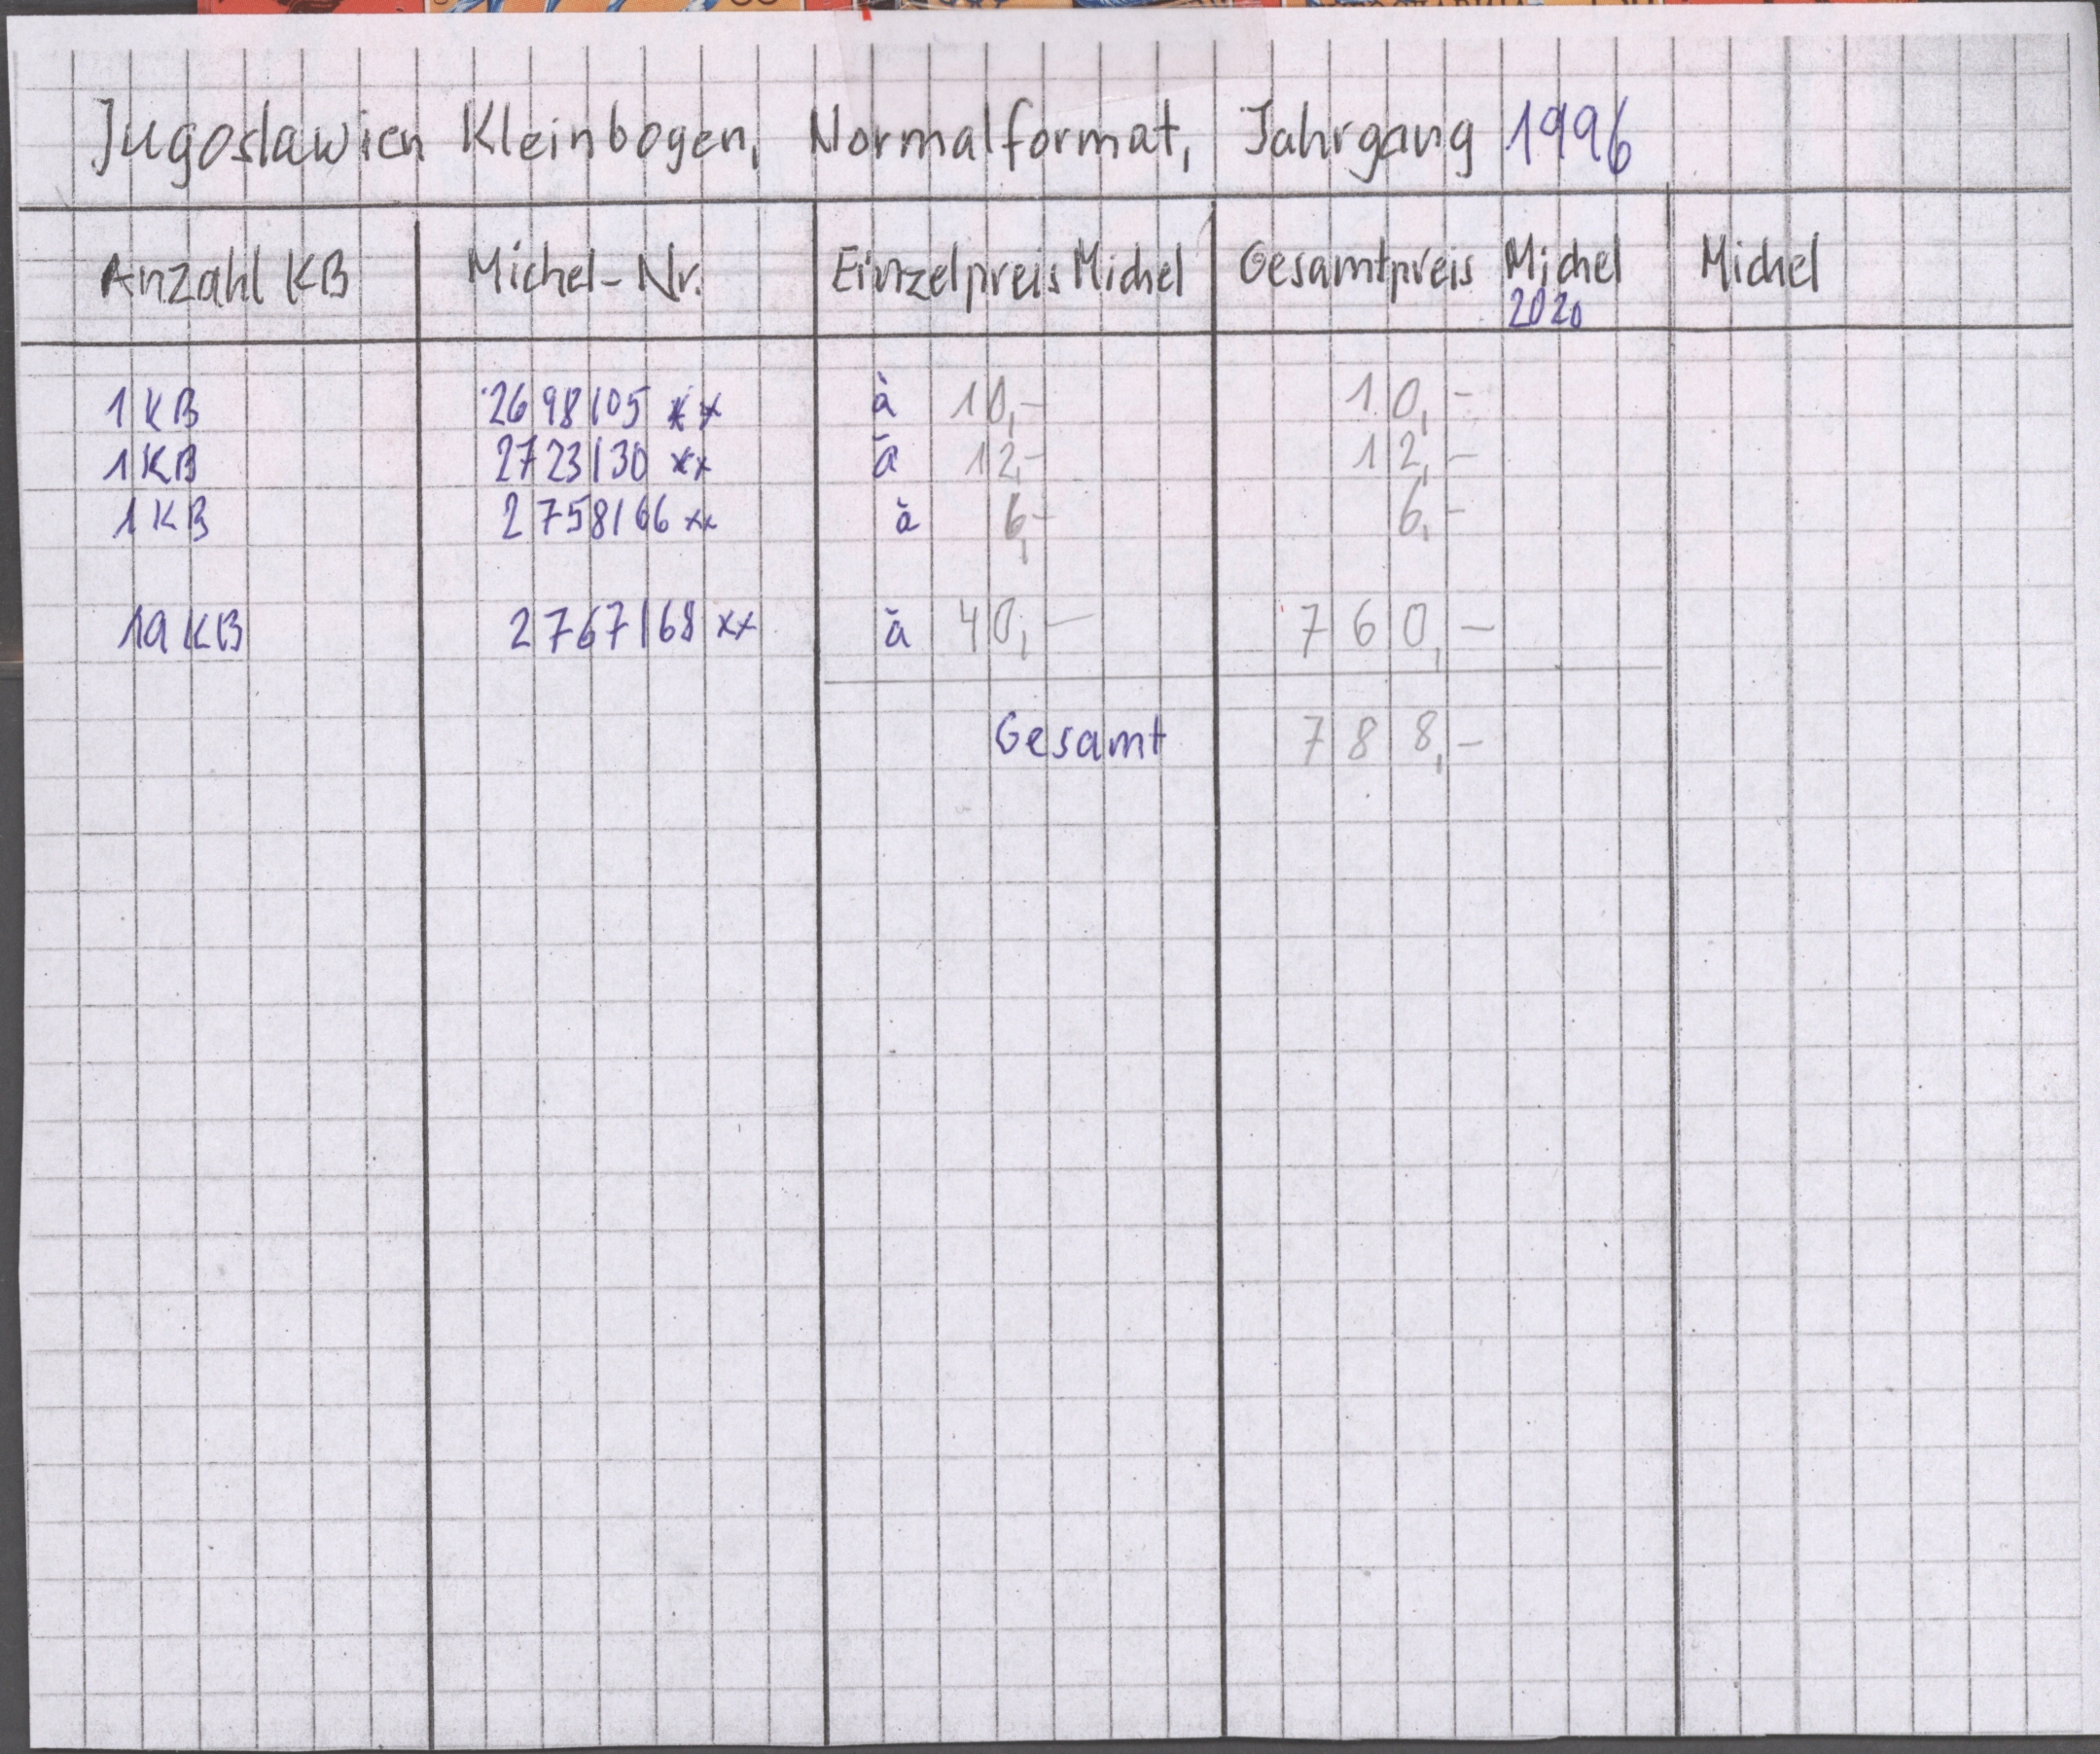 Jugoslawien Kleinbogen, Normalformat, Jahrgang 1996
Anzahl KB Michel-Nr. Einzelpreis Michel Gesamtpreis Michel 2020 Michel
1 KB 2698/05 xx à 10,- 10,-
1 KB 2723/30 xx à 12,- 12,-
1 KB 2758/66 xx à 6,- 6,-
19 KB 2767/68 xx à 40,- 760,-
Gesamt 788,-